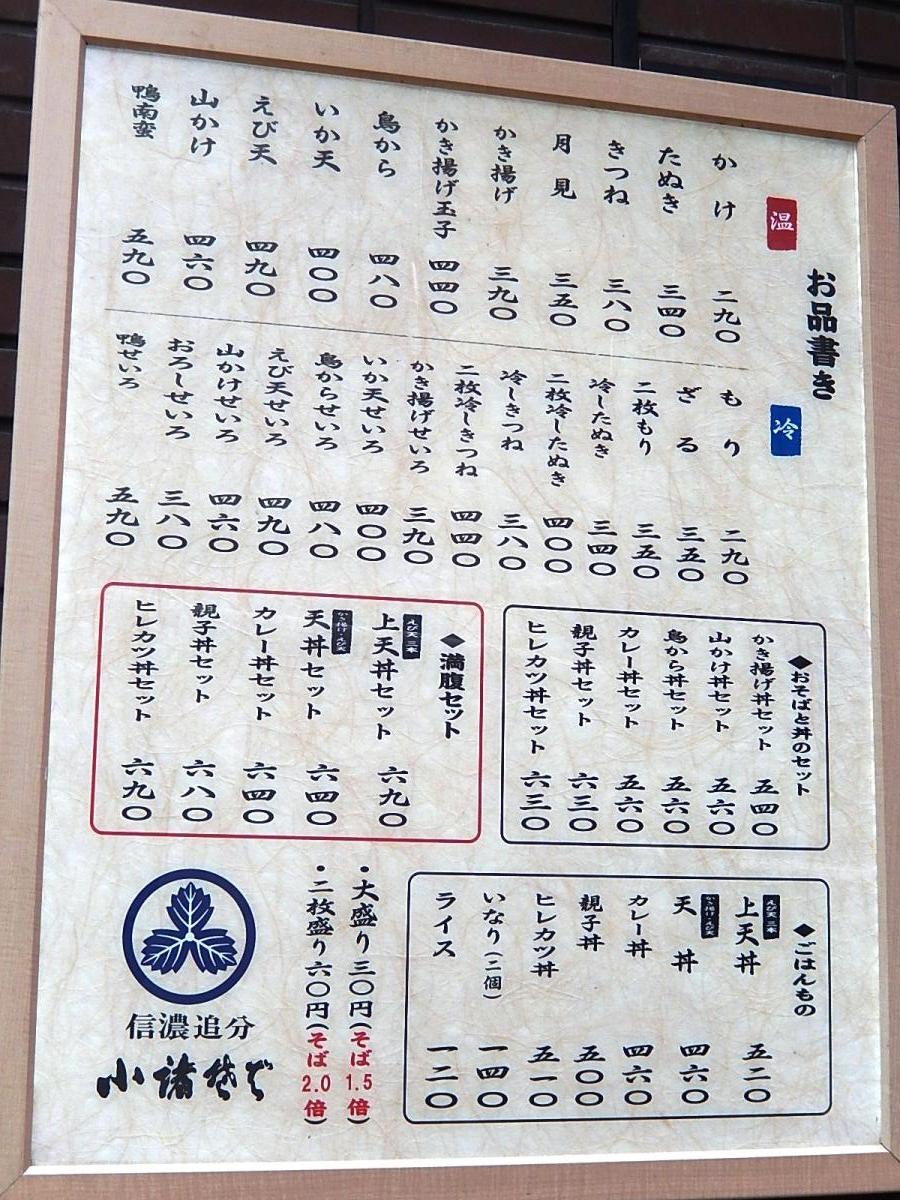 お品書き
温
かけ 二九〇
たぬき 三四〇
きつね 三八〇
月見 三五〇
かき揚げ 三九〇
かき揚げ玉子 四四〇
鳥から 四八〇
いか天 四〇〇
えび天 四九〇
山かけ 四六〇
鴨南蛮 五九〇
冷
もり 二九〇
ざる 三五〇
二枚もり 三五〇
冷したぬき 三四〇
二枚冷したぬき 四〇〇
冷しきつね 三八〇
二枚冷しきつね 四四〇
かき揚げせいろ 三九〇
いか天せいろ 四〇〇
鳥からせいろ 四八〇
えび天せいろ 四九〇
山かけせいろ 四六〇
おろしせいろ 三八〇
鴨せいろ 五九〇
◆おそばと丼のセット
かき揚げ丼セット 五四〇
山かけ丼セット 五六〇
鳥から丼セット 五六〇
カレー丼セット 五六〇
親子丼セット 六三〇
ヒレカツ丼セット 六三〇
◆満腹セット
えび天三本
上天丼セット 六九〇
かき揚げ・えび天
天丼セット 六四〇
カレー丼セット 六四〇
親子丼セット 六八〇
ヒレカツ丼セット 六九〇
◆ごはんもの
えび天三本
上天丼 五二〇
かき揚げ・えび天
天丼 四六〇
カレー丼 四六〇
親子丼 五〇〇
ヒレカツ丼 五一〇
いなり(二個) 一四〇
ライス 一二〇
・大盛り三〇円(そば1.5倍)
・二枚盛り六〇円(そば2.0倍)
信濃追分
小諸そば